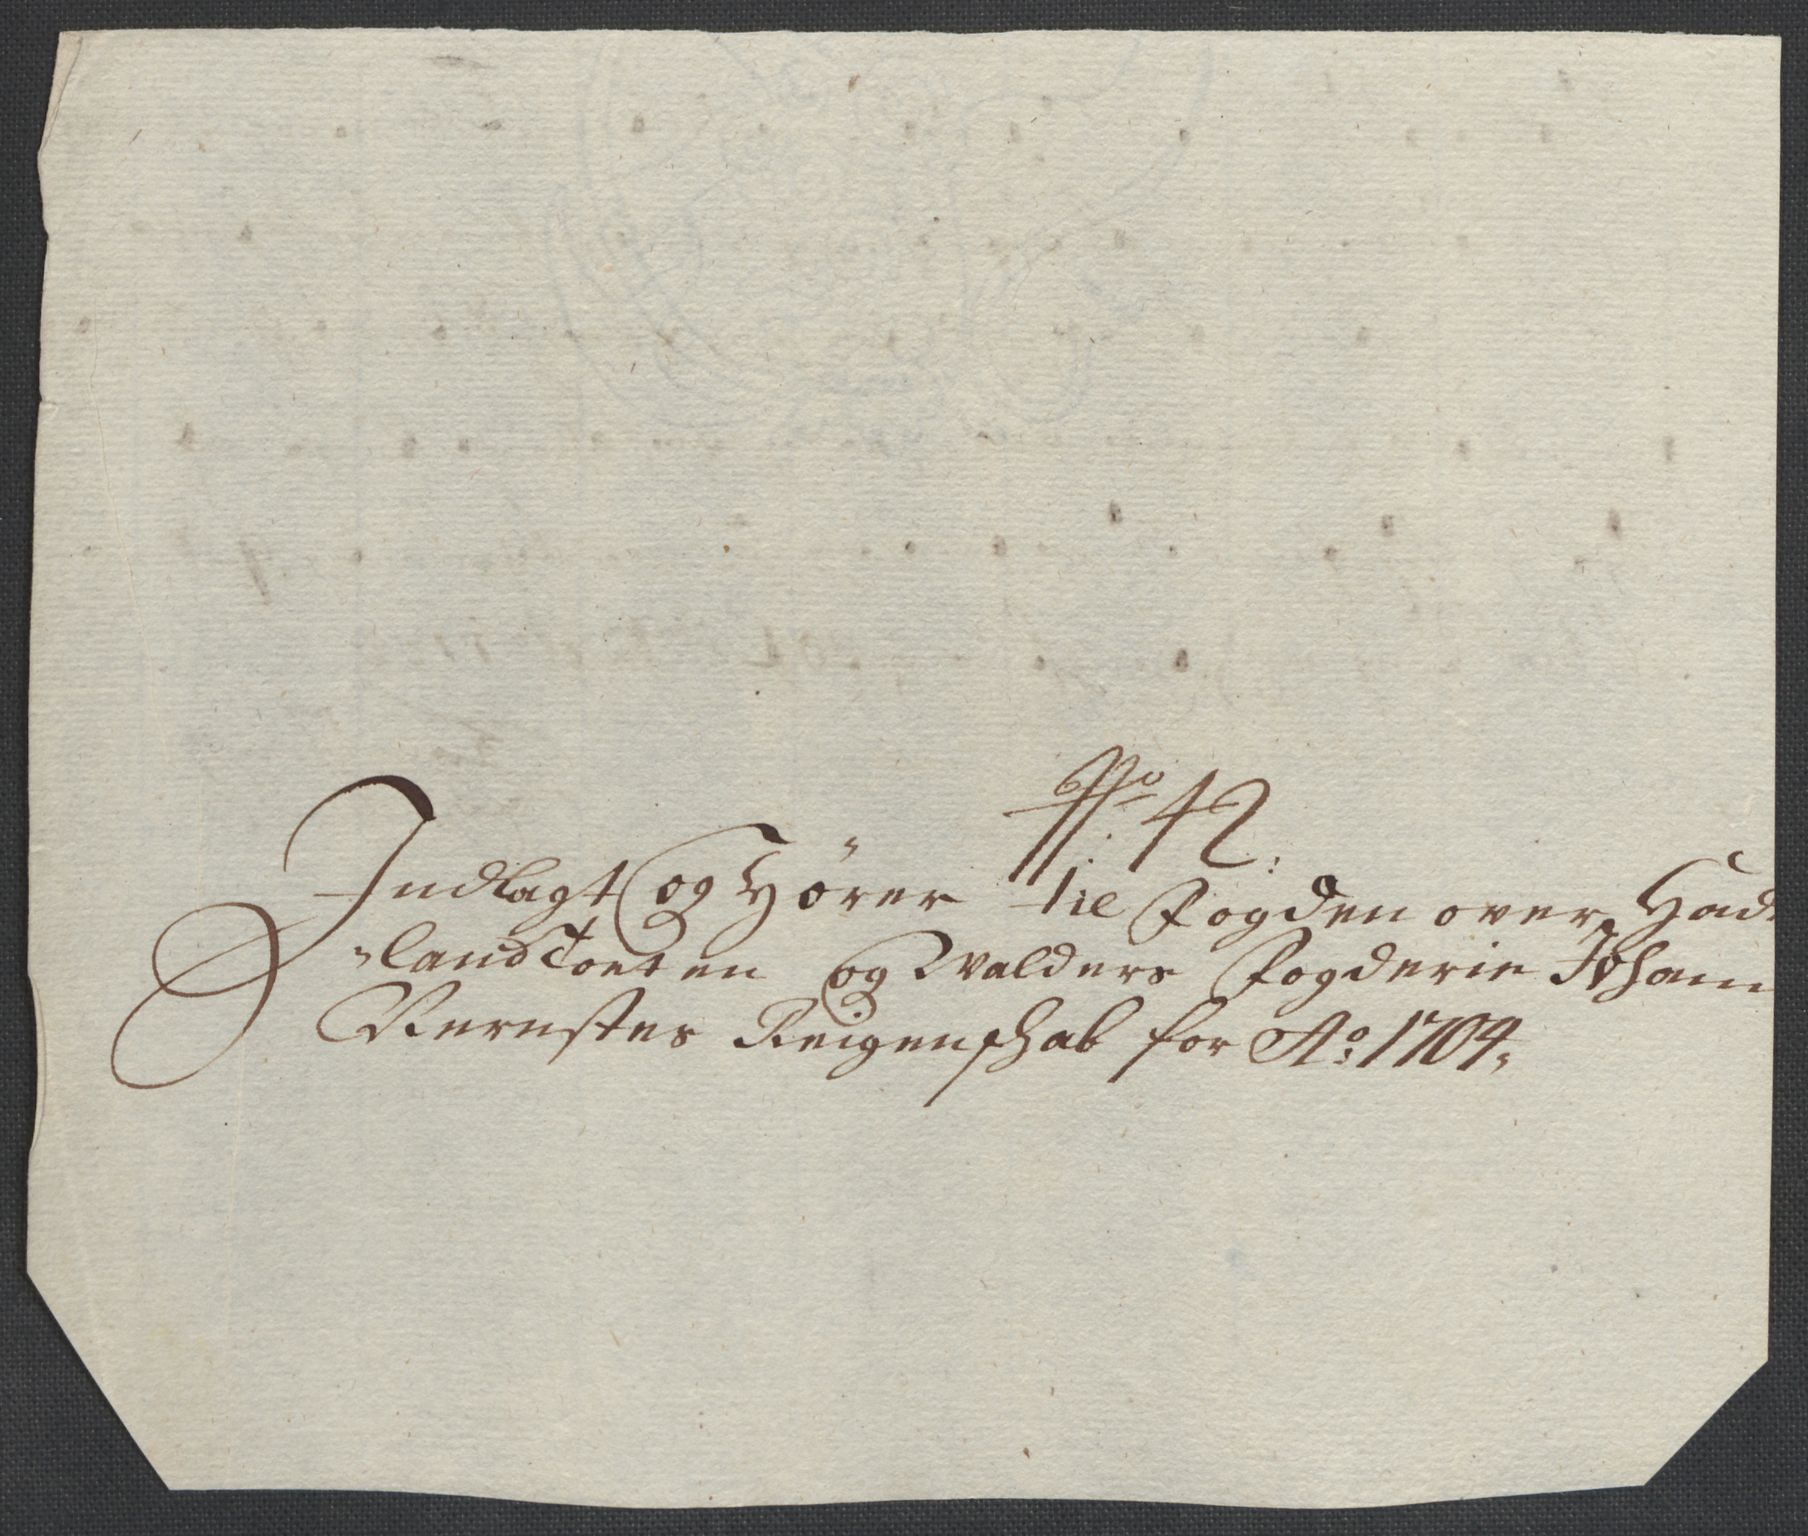 No 42:
Indlagt og Hører til Fogden over Had
landToten og Walders Fogderie Johan
Rerustes Reigenschab for Ao: 1704,